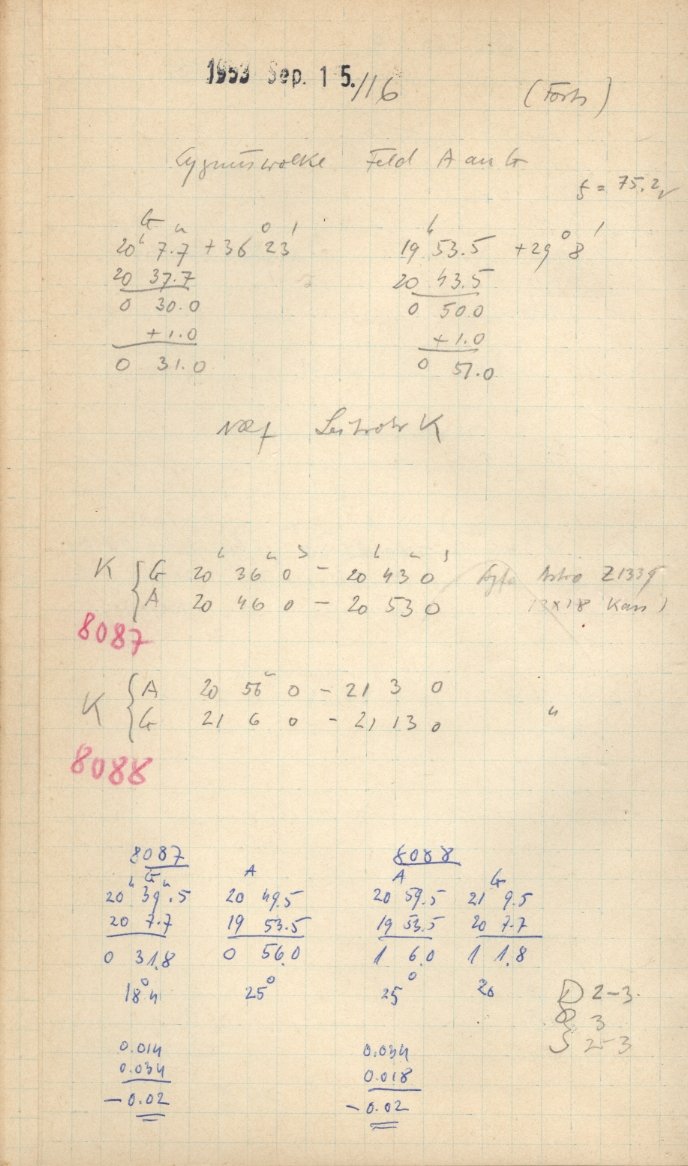 1953 Sep. 15./16 (Forts)
Cygnuswolke Feld A an G
f = 75.2
G
20h 7.7m +36° 23'
20 37.7
0 30.0
+1.0
0 31.0
19h 53.5 +29° 8'
20 43.5
0 50.0
+1.0
0 51.0
Leitrohr K
K { G 20h 36m 0s – 20h 43m 0s Agfa Astro Z1339
A 20 46 0 – 20 53 0 13×18
8087
K { A 20 56 0 – 21 3 0
G 21 6 0 – 21 13 0 "
8088
8087
G
20h 39m.5
20 7.7
0 31.8
18°4
A
20 49.5
19 53.5
0 56.0
25°
8088
A
20 59.5
19 53.5
1 6.0
25°
G
21 9.5
20 7.7
1 1.8
20
D 2–3.
R 3
S 2–3
0.014
0.034
–0.02
0.034
0.018
–0.02